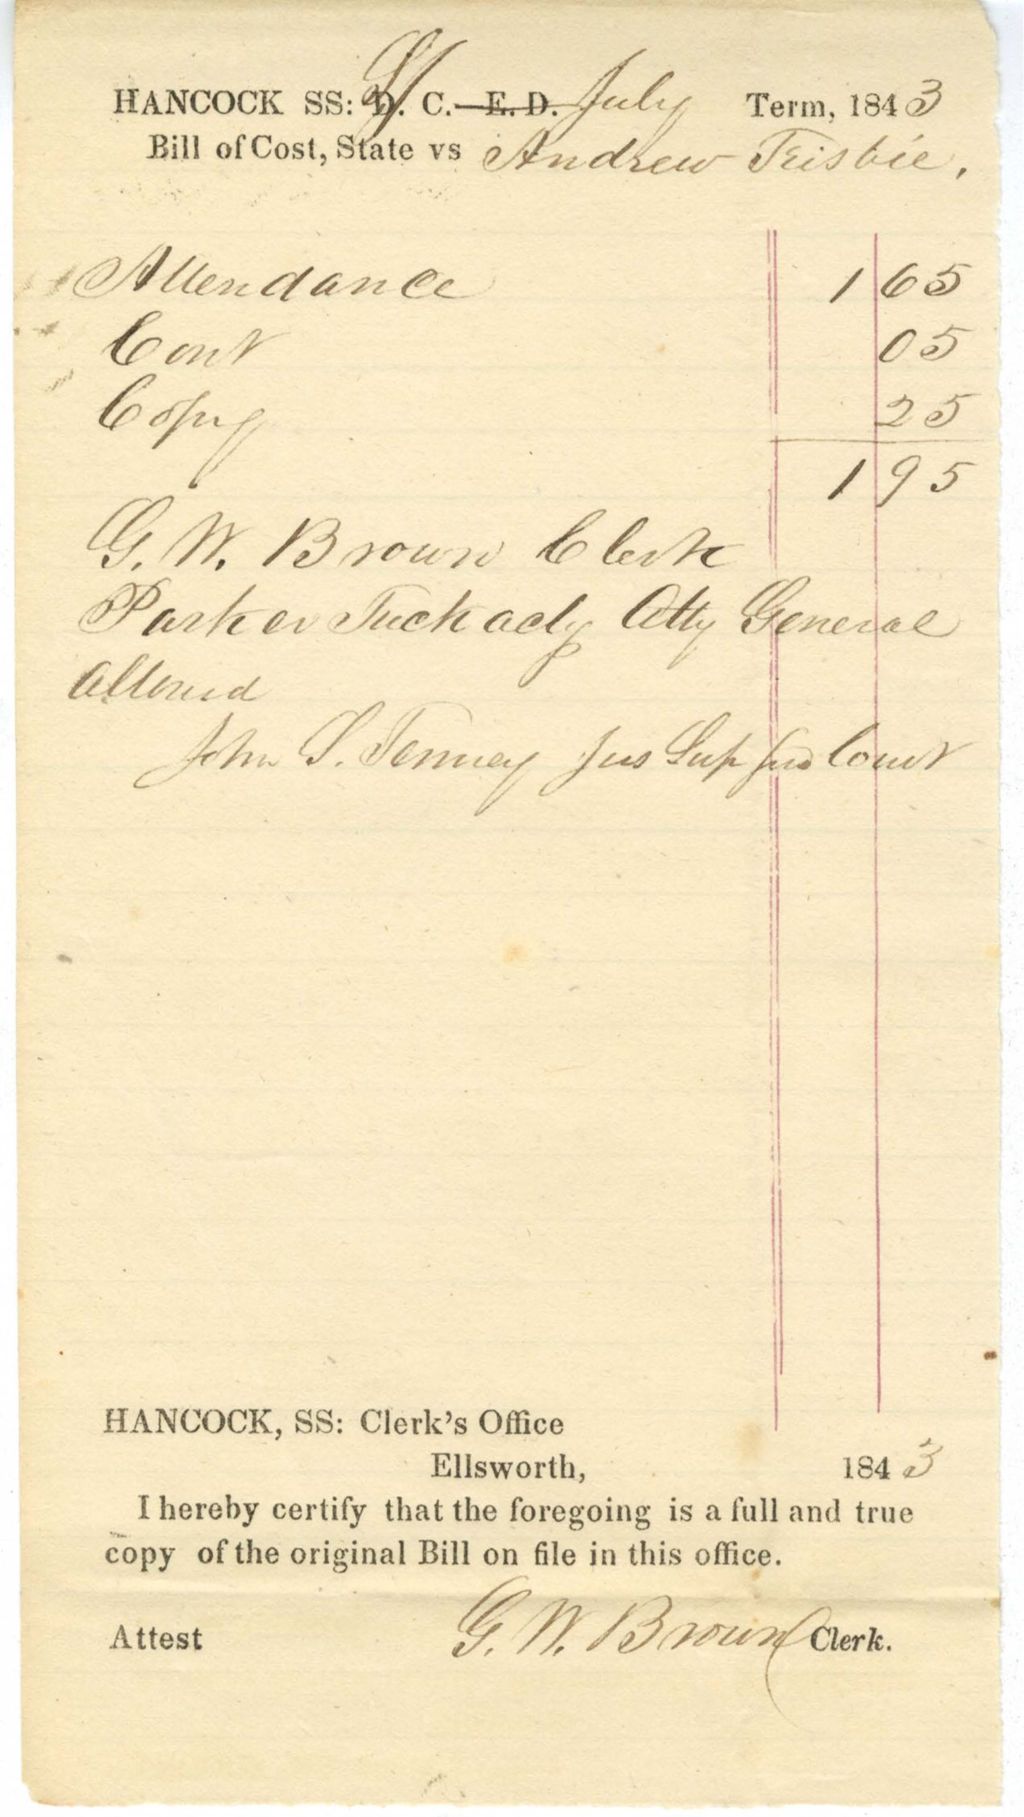 HANCOCK SS: S. C. E. D. July Term, 1843
Bill of Cost, State vs Andrew Frisbie.
Attendance 1 65
Cont 05
Copy 25
1 95
G. W. Brown Clerk
Parker Tuck ady Atty General
Allowed
John S. Tenney Jus Sup Jud Court
HANCOCK, SS: Clerk's Office
Ellsworth, 1843
I hereby certify that the foregoing is a full and true
copy of the original Bill on file in this office.
Attest G. W. Brown Clerk.